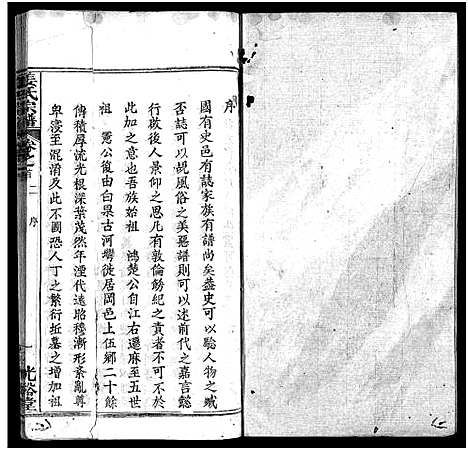 序
國有史邑有誌家族有譜尚矣蓋史可以驗人物之臧
否誌可以覘風俗之美惡譜則可以述前代之嘉言懿
行啟後人景仰之思凡有敦倫飭紀之責者不可不於
此加之意也吾族始祖 鴻楚公自江右遷麻至五世
祖 憲公復由白杲古河壪徙居岡邑上伍鄉二十餘
傳積厚流光根深葉茂然年湮代遠昭穆漸形紊亂尊
卑寖至混淆及此不圖恐人丁之繁衍坵墓之增加祖
姜氏宗譜
卷之首
二
序
光裕堂